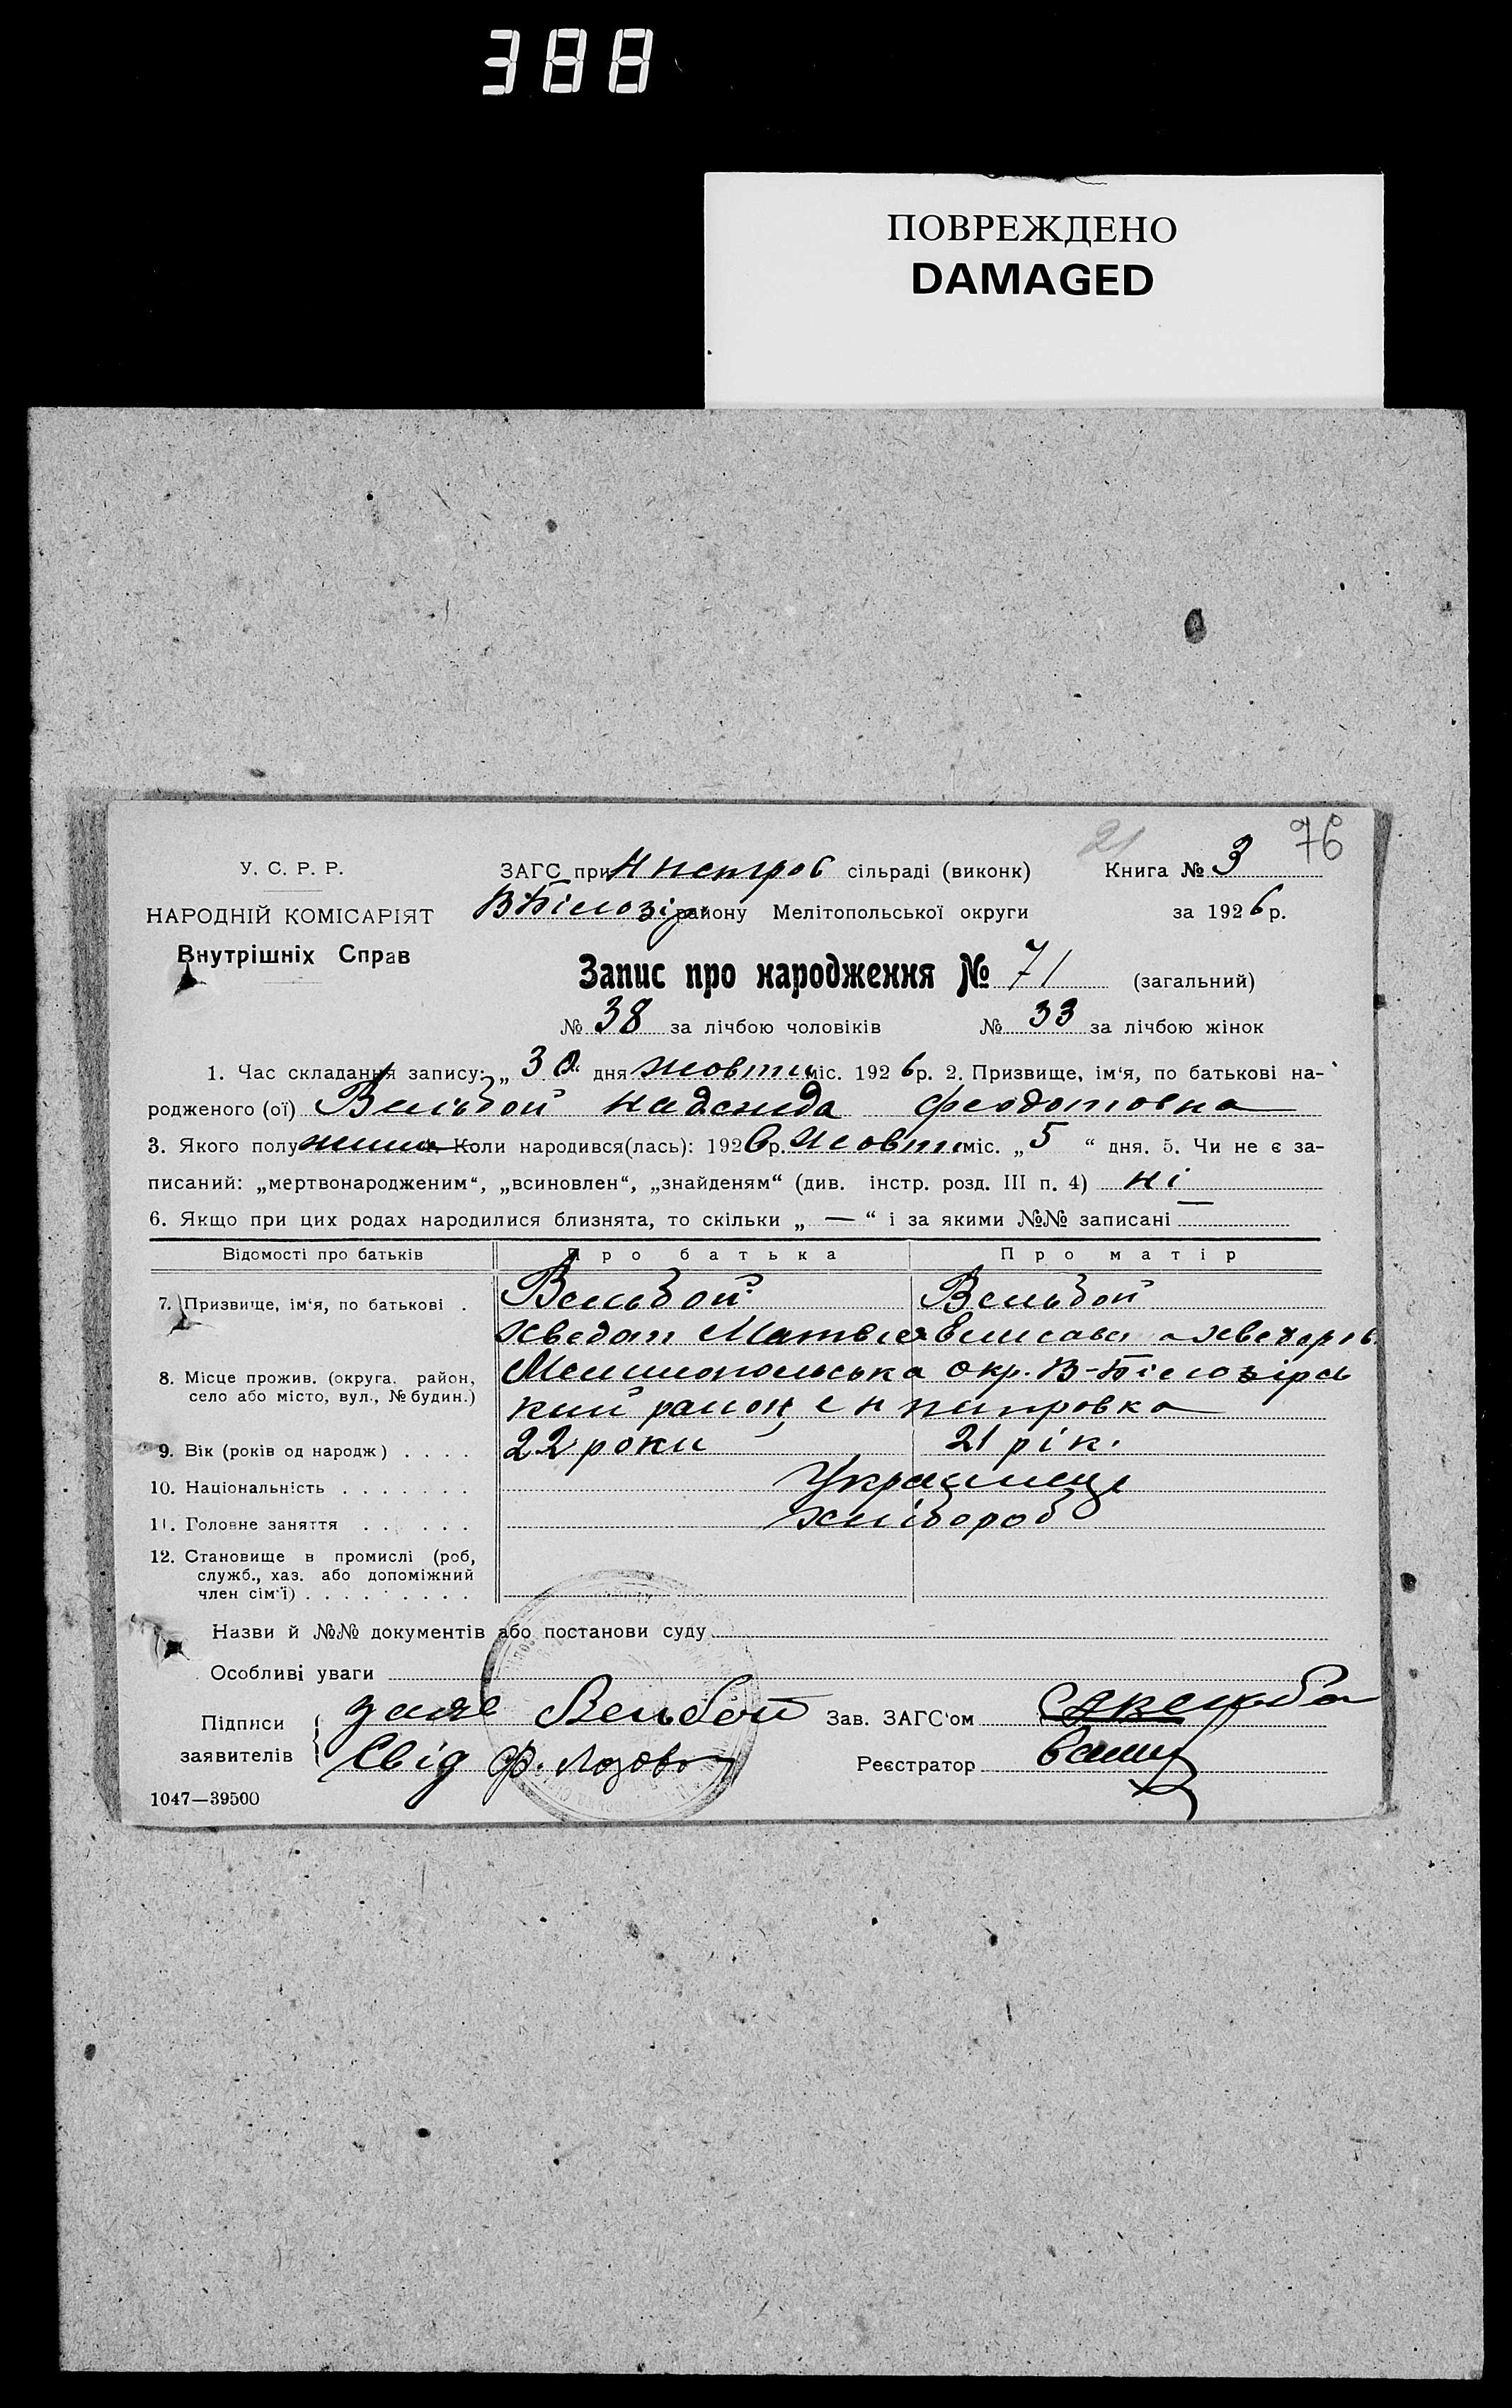 388
ПОВРЕЖДЕНО
DAMAGED
21 76
У. С. Р. Р.
ЗАГС при Н петров сільраді (виконк) Книга № 3
НАРОДНІЙ КОМІСАРІЯТ
В Білозір району Мелітопольської округи за 1926 р.
Внутрішніх Справ
Запис про народження № 71 (загальний)
№ 38 за лічбою чоловіків № 33 за лічбою жінок
1. Час складання запису: „ 30 дня жовтн міс. 1926 р. 2. Призвище, ім‘я, по батькові на-
родженого (ої) Вельбой Надежда Феодотовна
3. Якого полу Коли народився(лась): 1926 р. Жовтн міс. „ 5 “ дня. 5. Чи не є за-
писаний: „мертвонародженим“, „всиновлен“, „знайденям“ (див. інстр. розд. III п. 4) ні
6. Якщо при цих родах народилися близнята, то скільки „ — “ і за якими №№ записані —
Відомості про батьків Про батька Про матір
7. Призвище, ім‘я, по батькові . Вельбой Вельбой
Хведот Матвіев Елисавета Хведоров.
8. Місце прожив. (округа, район, Мелитопольська окр. В-Білозірсь
село або місто, вул., № будин.) кий район, с Н петровка
9. Вік (років од народж) . . . . 22 роки 21 рік.
10. Національність . . . . . . . Українці
11. Головне заняття . . . . . . хлібороб
12. Становище в промислі (роб,
служб., хаз. або допоміжний
член сім‘ї) . . . . . . . . .
Назви й №№ документів або постанови суду
Особливі уваги
Підписи заяв Вельбой Зав. ЗАГС‘ом
заявителів Свід Ф. Лозово Реєстратор
1047—39500